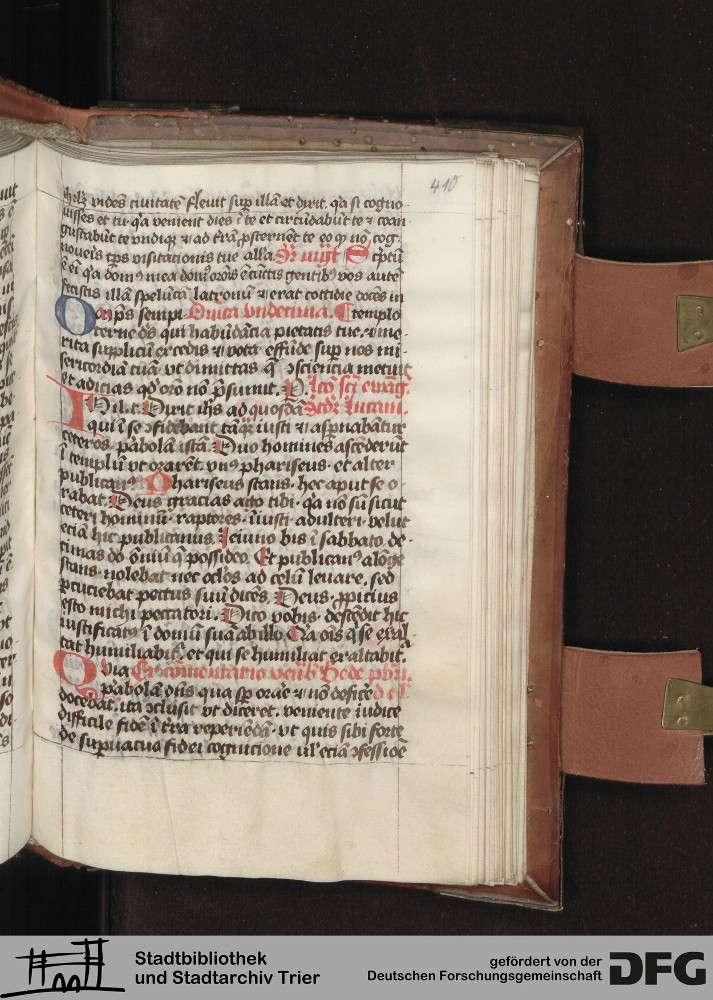 410
vidēs ciuitatē fleuit sup̄ illā et dixit. q̇a si cogno
uisses et tu· q̇a venient dies ī te et circūdabūt te ⁊ coan
gustabūt te vndiqꝫ ⁊ ad t̄rā ꝓsternēt te eo ꝙ nō cog
noueis tp̄s visitationis tue all'a. Scptū
ē ei q̇a domꝰ mea domꝰ orōis ē cūctis gentibꝰ vos autē
fecistis illā spelūcā latronū ⁊ erat cottidie docēs in
Oom̄ps sempi Dn̄ica vndecima. templo
terne dѕ qui habūdācia pietatis tue. ⁊ me
rita supplicū excedis ⁊ vota· effūde sup̄ nos mi
sericordiā tuā· vt dimittas q̄ ꝯsciencia metuit
et adicias qd' orō nō p̄sumit. P. lcō scī ewāg.
IN ill t. Dixit ih̄s ad quosdā scd'ꝫ lucam.
qui ī se ꝯfidebant tāq̄ꝫ iusti ⁊ aspnabātur
ceteros. pabolā istā. Duo homines ascēderūt
ī templū vt orarēt. vnꝰ phariseus· et alter
publicanꝰ Phariseus stans. hec aput se o
rabat. Deus gracias ago tibi· q̇a nō sū sicut
ceteri hominū· raptores· iniusti· adulteri· velut
eciā hic publicanus. Ieiuno bis ī sabbato. de
cimas do om̄iū q̄ possideo. Et publicanꝰ alōge
stans· nolebat nec oclōs ad celū leuare. sed
ꝑcuciebat pectus suū dicēs. Deus· ꝓpicius
esto michi peccatori. Dico vobis· descēdit hic
iustificatꝰ ī domū suā ab illo. Qa oīs q̇ se exal
tat humiliabit᷑. et qui se humiliat exaltabit᷑.
Quia Ex cōmentario ven̄b Bede pbr̄i.
pabolā dn̄s qua sꝑ orār̄e ⁊ nō deficē
docebat. ita ꝯclusit vt diceret. veniente iudice
difficile fidē ī t̄ra reperiēdā· vt quis sibi forte
de supuacua fidei cognicione uꝉ eciā ꝯfessiōe
Stadtbibliothek
und Stadtarchiv Trier
gefördert von der
Deutschen Forschungsgemeinschaft
DFG